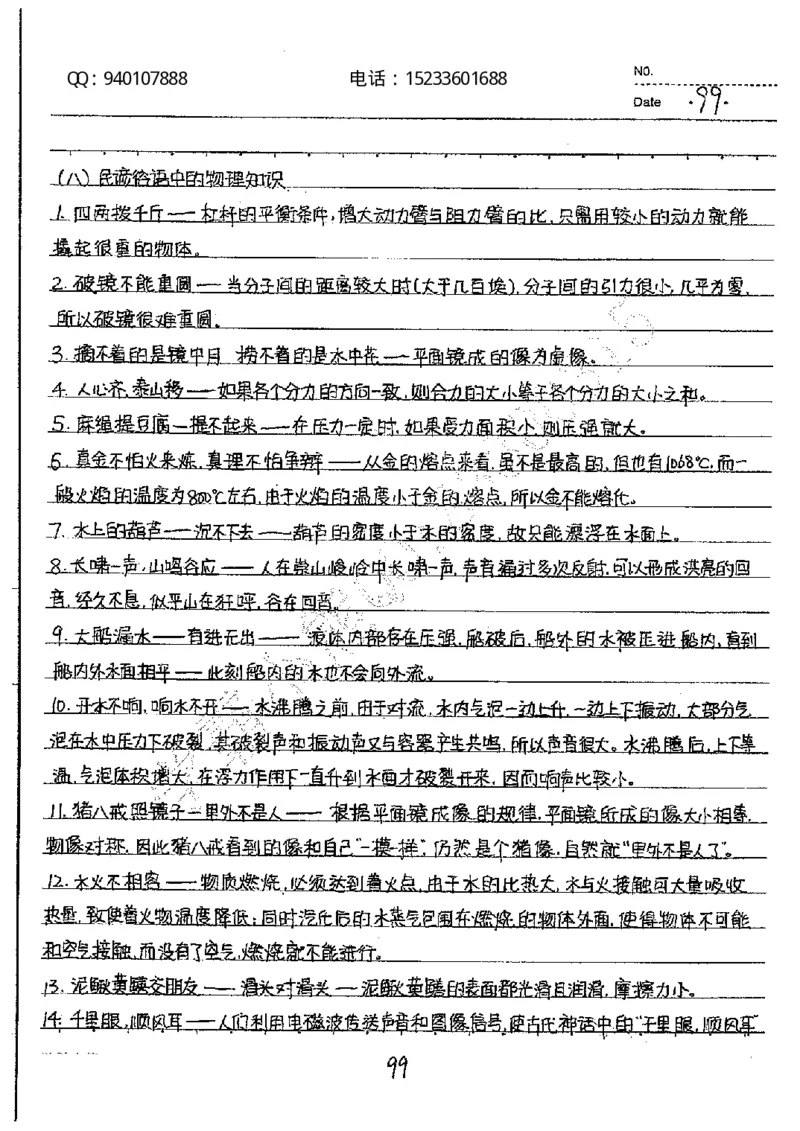 QQ：940107888 电话：15233601688 NO.
Date ·99·
(八) 民谚俗语中的物理知识
1. 四两拨千斤——杠杆的平衡条件,增大动力臂与阻力臂的比,只需用较小的动力就能
撬起很重的物体。
2. 破镜不能重圆——当分子间的距离较大时(大于几百埃),分子间的引力很小,几乎为零,
所以破镜很难重圆。
3. 摘不着的是镜中月 捞不着的是水中花——平面镜成的像为虚像。
4. 人心齐,泰山移——如果各个分力的方向一致,则合力的大小等于各个分力的大小之和。
5. 麻绳提豆腐—提不起来——在压力一定时,如果受力面积小,则压强就大。
6. 真金不怕火来炼,真理不怕争辩——从金的熔点来看,虽不是最高的,但也有1068℃,而一
般火焰的温度为800℃左右,由于火焰的温度小于金的熔点,所以金不能熔化。
7. 水上的葫芦——沉不下去——葫芦的密度小于水的密度,故只能漂浮在水面上。
8. 长啸一声,山鸣谷应——人在崇山峻岭中长啸一声,声音通过多次反射,可以形成洪亮的回
音,经久不息,似乎山在狂呼,谷在回音。
9. 大船漏水——有进无出——液体内部存在压强,船破后,船外的水被压进船内,直到
船内外水面相平——此刻船内的水也不会向外流。
10. 开水不响,响水不开——水沸腾之前,由于对流,水内气泡一边上升,一边上下振动,大部分气
泡在水中压力下破裂,其破裂声和振动声又与容器产生共鸣,所以声音很大。水沸腾后,上下等
温,气泡体积增大,在浮力作用下一直升到水面才破裂开来,因而响声比较小。
11. 猪八戒照镜子—里外不是人——根据平面镜成像的规律,平面镜所成的像大小相等,
物像对称,因此猪八戒看到的像和自己"一模一样",仍然是个猪像,自然就"里外不是人了"。
12. 水火不相容——物质燃烧,必须达到着火点,由于水的比热大,水与火接触可大量吸收
热量,致使着火物温度降低;同时汽化后的水蒸气包围在燃烧的物体外面,使得物体不可能
和空气接触,而没有了空气,燃烧就不能进行。
13. 泥鳅黄鳝交朋友——滑头对滑头—泥鳅黄鳝的表面都光滑且润滑,摩擦力小。
14. 千里眼,顺风耳——人们利用电磁波传送声音和图像信号,使古代神话中的"千里眼,顺风耳"
99